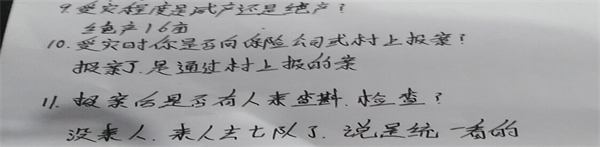 9.受灾程度是减产还是绝产?
绝产16亩
10.受灾时你是否向保险公司或村上报案?
报案了.是通过村上报的案
11.报案后是否有人来查斟.检查?
没来人.来人去七队了.说是统一看的